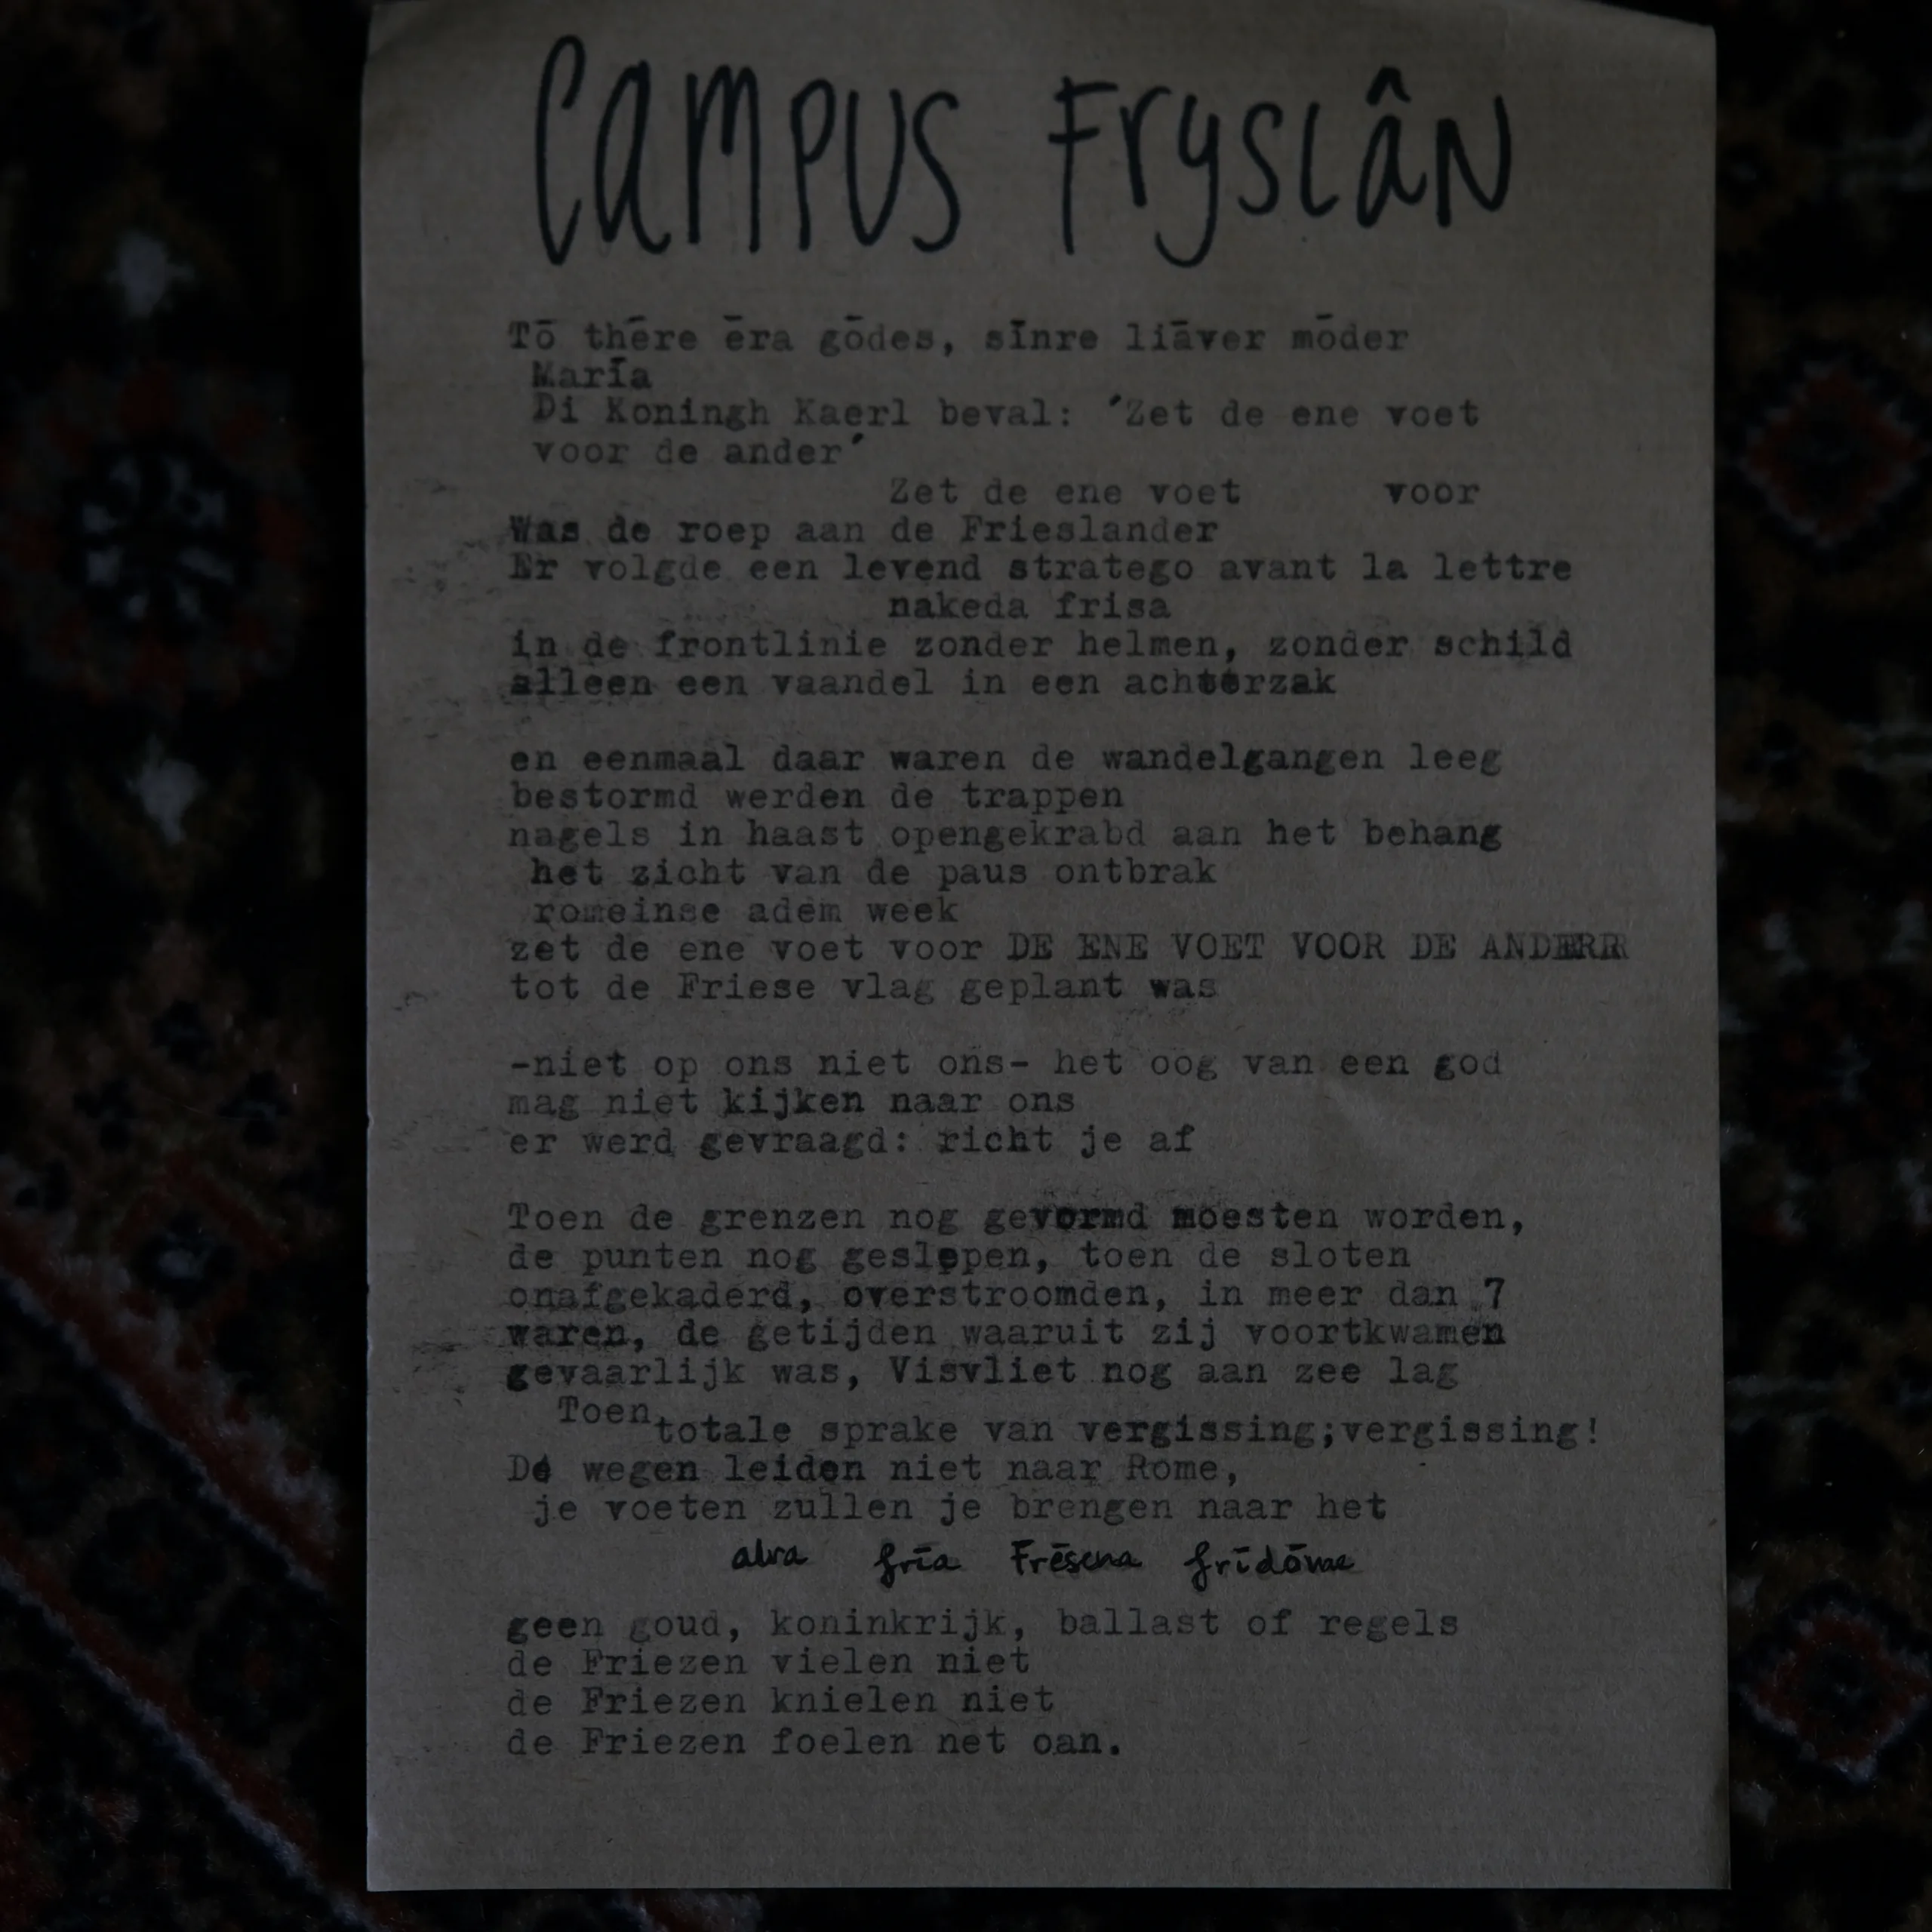 Campus Fryslân
Tō thēre ēra gōdes, sīnre liāver mōder
María
Di Koningh Kaerl beval: 'Zet de ene voet
voor de ander'
Zet de ene voet voor
Was de roep aan de Frieslander
Er volgde een levend stratego avant la lettre
nakeda frisa
in de frontlinie zonder helmen, zonder schild
alleen een vaandel in een achterzak
en eenmaal daar waren de wandelgangen leeg
bestormd werden de trappen
nagels in haast opengekrabd aan het behang
het zicht van de paus ontbrak
romeinse adem week
zet de ene voet voor DE ENE VOET VOOR DE ANDERR
tot de Friese vlag geplant was
-niet op ons niet ons- het oog van een god
mag niet kijken naar ons
er werd gevraagd: richt je af
Toen de grenzen nog gevormd moesten worden,
de punten nog geslepen, toen de sloten
onafgekaderd, overstroomden, in meer dan 7
waren, de getijden waaruit zij voortkwamen
gevaarlijk was, Visvliet nog aan zee lag
Toen totale sprake van vergissing;vergissing!
De wegen leiden niet naar Rome,
je voeten zullen je brengen naar het
alra fria Frēsena frīdōme
geen goud, koninkrijk, ballast of regels
de Friezen vielen niet
de Friezen knielen niet
de Friezen foelen net oan.